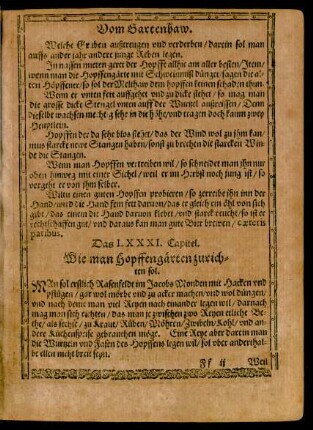 Vom Gartenbaw.
Welche Erben außtreugen vnd verderben / darein sol man
auffs ander jahr andere junge Reben legen.
In nassen wetten geret der Hopffe allhie am aller besten / Item /
wenn man die Hopffengärte mit Schweinmist dünget / sagen die al-
ten Höpffener / so sol der Melthaw dem hopffen keinen schaden thun.
Wenn er vnten fein auffgehet vnd zu dicke stehet / so mag man
die grosse dicke Stengel vnten auff der Wurtzel abreissen / Denn
dieselbe wachsen nicht sehr in die höhe / vnd tragen doch kaum zwey
Heuptlein.
Hopffen der da sehr blos stehet / das der Wind wol zu jhm kan /
mus starcke newe Stangen haben / sonst zu brechen die starcken Win-
de die Stangen.
Wenn man Hopffen vertreiben wil / so schneidet man jhn nur
oben hinweg mit einer Sichel / weil er im Herbst noch jung ist / so
vergehet er von jhm selber.
Wiltu einen guten Hopffen probieren / so zerreibe jhn inn der
Hand / wird die Hand fein fett daruon / das er gleich ein öhl von sich
gibt / das einem die Hand daruon klebet / vnd starck reucht / so ist er
rechtschaffen gut / vnd daraus kan man gute Bier brewen / cæteris
paribus.
Das LXXXI. Capitel.
Wie man Hopffengärten zurich-
ten sol.
MAn sol erstlich Rasenfelde im Jacobs Monden mit Hacken vnd
Pflügen / gar wol mörbe vnd zu acker machen / vnd wol düngen /
vnd nach deme man viel Reyen nach einander legen wil / darnach
mag man sich richten / das man je zwischen zwo Reyen etliche Be-
the / als sechse / zu Kraut / Rüben / Möhren / Zwibeln / Kohl / vnd an-
dere Küchenspeise gebrauchen möge. Eine Reye aber darein man
die Wurtzeln vnd Fasen des Hopffens legen wil / sol vber anderthal-
be ellen nicht breit sein.
Ff ij Weil